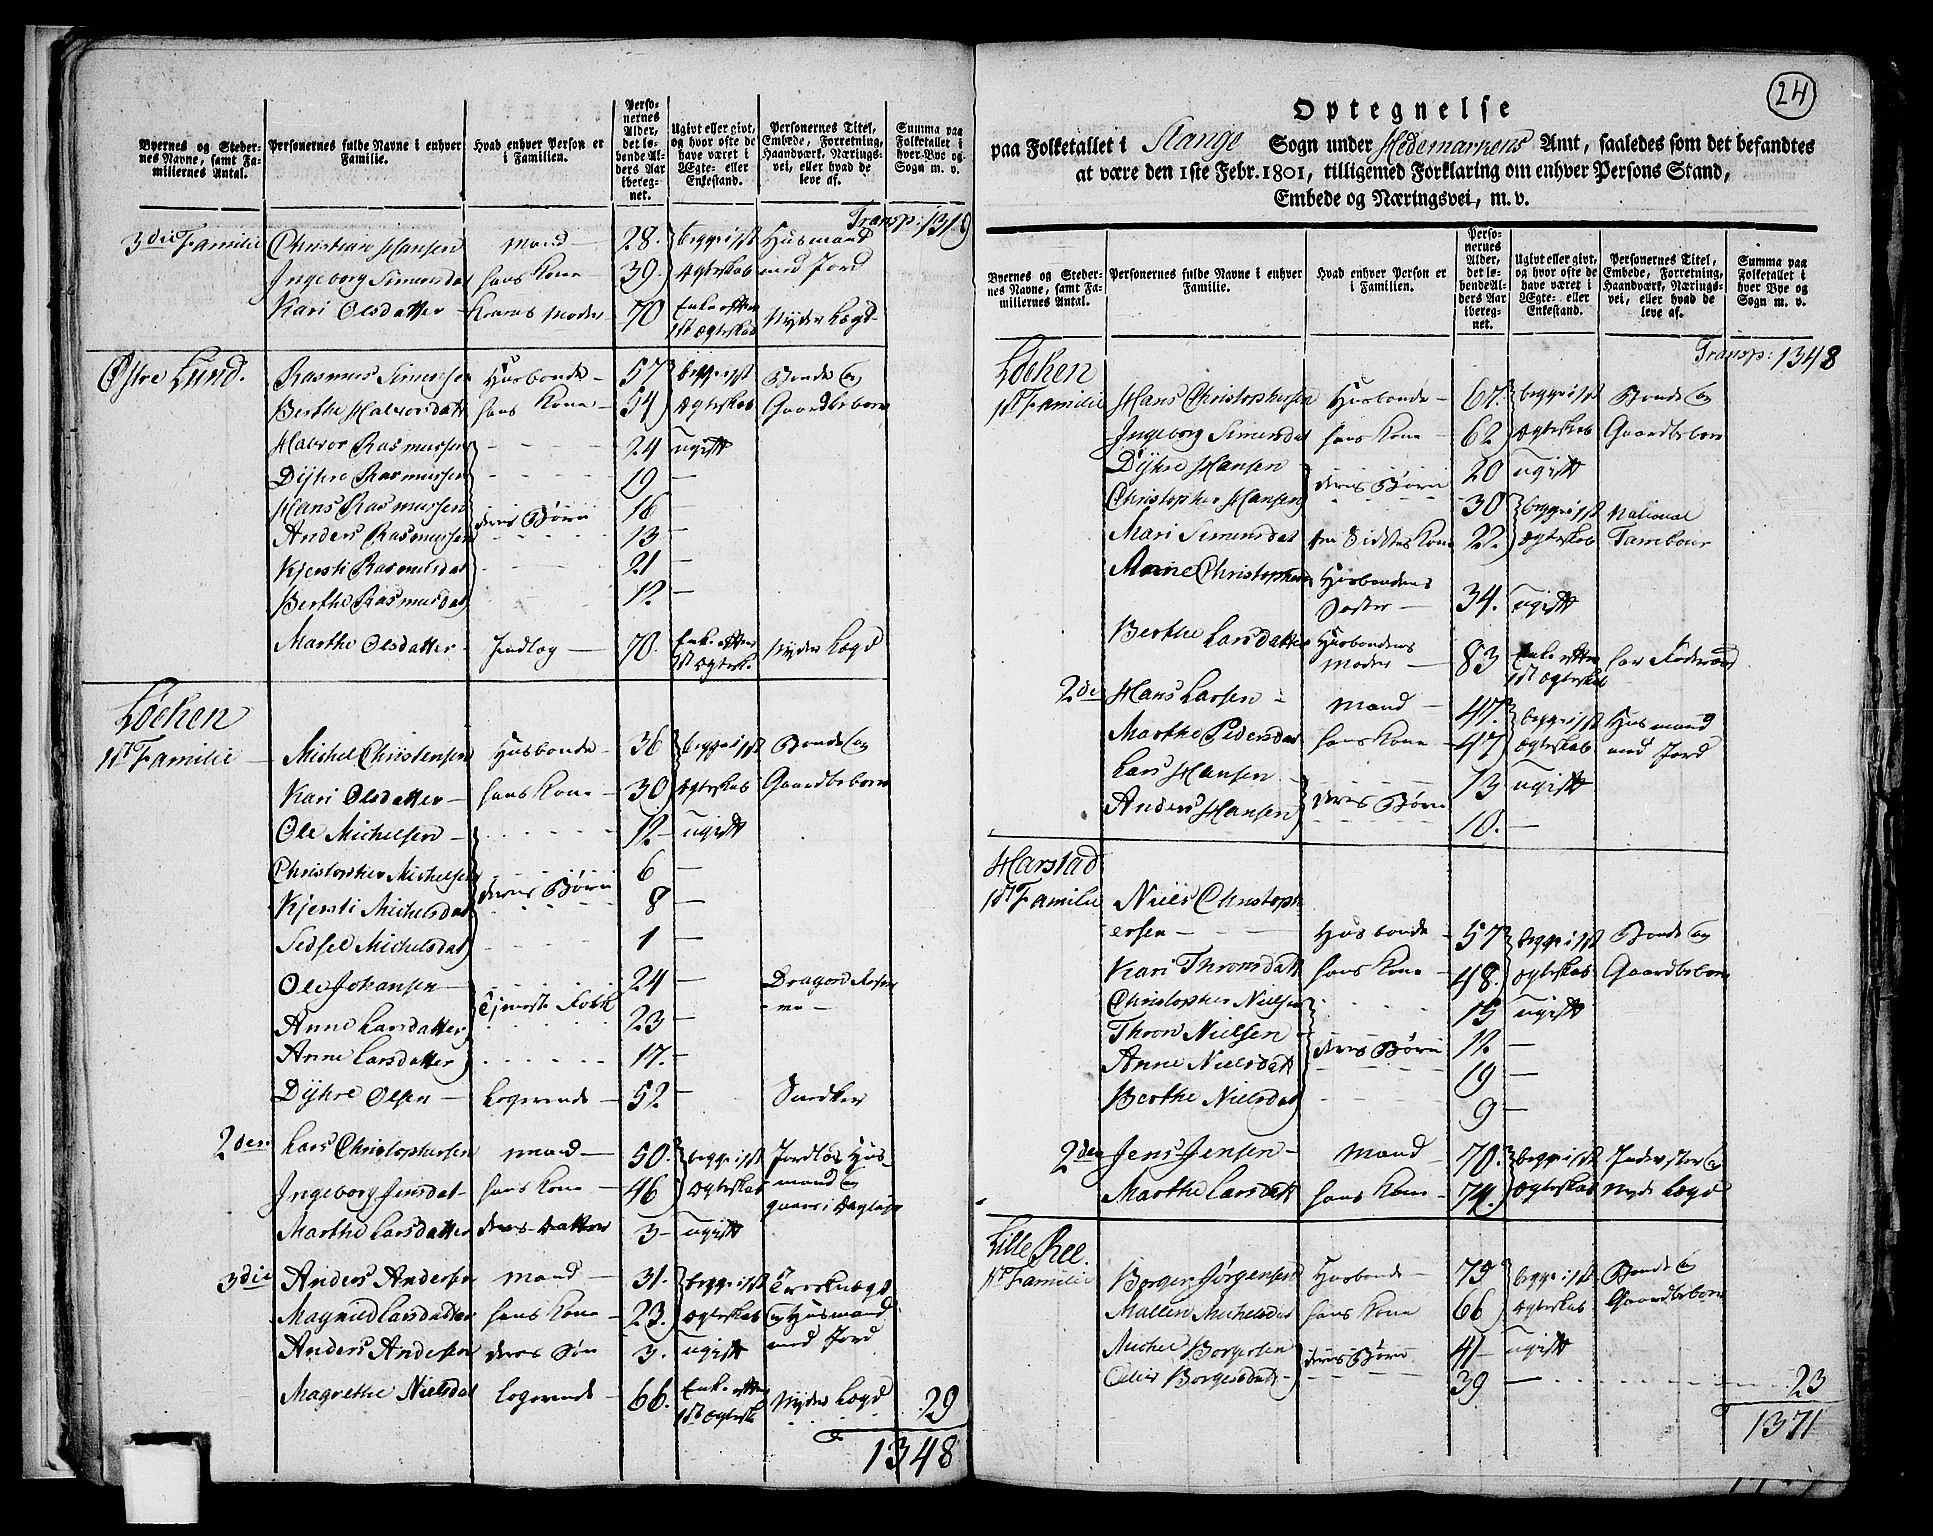 Byernes og Steder-
nes Navne, samt Fa-
miliernes Antal.
Personernes fulde Navne i enhver
Familie.
Hvad enhver Person er
i Familien.
Perso-
nernes
Alder,
det lø-
bende Al-
ders Aar
ibereg-
net.
Ugivt eller givt,
og hvor ofte de
have været i
Ægte- eller
Enkestand.
Personernes Titel,
Embede, Forretning,
Haandværk, Nærings-
vei, eller hvad de
leve af.
Summa paa
Folketallet i
hver Bye og
Sogn m. v.
Transp: 1319
3die Familie Christian Hansen mand 28. begge i 1ste Husmand
Ingeborg Simensdat hans Kone 39. Ægteskab med Jord
Kari Olsdatter Konens Moder 70 Enke efter 1ste Ægteskab Nyder Lægd
Østre Lund. Rasmus Simensen Husbonde 57 begge i 1ste Bonde og
Berthe Halvorsdatt hans Kone 54 Ægteskab Gaardbeboer
Halvor Rasmussen 24 ugift
Dyhre Rasmussen 19 —
Hans Rasmussen deres Børn 16 —
Anders Rasmussen 13 —
Kjersti Rasmusdat 21 —
Berthe Rasmusdat 12 —
Marthe Olsdatter Indlog 70. Enke efter 1st Ægtesk. Nyder Lægd
Løcken
1st Familie Michel Christensen Husbonde 36 begge i 1st Bonde og
Kari Olsdatter hans Kone 30 Ægteskab Gaardbeboer
Ole Michelsen 12 ugift
Christopher Michelsen 6 —
Kjersti Michelsdat deres Børn 8 —
Sedsel Michelsdat 1 —
Ole Johansen 24 — Dragon
Anne Larsdatter Tjeneste Folk 23 —
Anne Larsdatter 17. —
Dyhre Olsen Logerende 52 — Snedker
2den Lars Christophersen mand 50. begge i 1st Jordløs Hus-
Ingeborg Jensdat hans Kone 46 Ægteskab mand og
Marthe Larsdatter deres Datter 3 ugift
3die Anders Andersen mand 31. begge i 1st
Magnild Larsdatter hans Kone 23. Ægteskab og Husmand
Anders Andersen deres Søn 3. ugift med Jord
Magrethe Nielsdat logerende 66. Enke efter 1st Ægtesk Nyder Lægd 29
1348
24
Optegnelse
paa Folketallet i Stange Sogn under Hedemarkens Amt, saaledes som det befandtes
at være den 1ste Febr. 1801, tilligemed Forklaring om enhver Persons Stand,
Embede og Næringsvei, m. v.
Byernes og Steder-
nes Navne, samt Fa-
miliernes Antal.
Personernes fulde Navne i enhver
Familie.
Hvad enhver Person er
i Familien.
Perso-
nernes
Alder,
det lø-
bende Al-
ders Aar
ibereg-
net.
Ugivt eller givt,
og hvor ofte de
have været i
Ægte- eller
Enkestand.
Personernes Titel,
Embede, Forretning,
Haandværk, Nærings-
vei, eller hvad de
leve af.
Summa paa
Folketallet i
hver Bye og
Sogn m. v.
Transp: 1348
Løcken
1st Familie Hans Christophersen Husbonde 67. begge i 1st Bonde og
Ingeborg Simensdat hans Kone 62 Ægteskab Gaardbeboer
Dyhre Hansen deres Børn 20 ugift
Christopher Hansen 30 begge i 1st National
Mari Simensdat den Sidstes Kone 22. Ægteskab Tambour
Anne Christophers Husbondens Søster 34. ugift
Berthe Larsdatter Husbondens Moder 83 Enke efter 1st Ægteskab har Føderaad
2de Hans Larsen mand 47. begge i 1st Husmand
Marthe Pedersdat hans Kone 47 Ægteskab med Jord
Lars Hansen deres Børn 13 ugift
Anders Hansen 10. —
Harstad
1st Familie Niels Christoph
ersen Husbonde 57 begge i 1st Bonde og
Kari Thronsdatt hans Kone 48. Ægteskab Gaardbeboer
Christopher Nielsen 15 ugift
Thron Nielsen deres Børn 12. —
Anne Nielsdatt 19 —
Berthe Nielsdat 9 —
2den Jens Jensen Mand 70. begge i 1st Inderster og
Marthe Larsdatt hans Kone 74. Ægteskab Nyde Lægd
Lille Ree.
1st Familie Borger Jørgensen Husbonde 75 begge i 1st Bonde og
Mallen Michelsdat hans Kone 66 Ægteskab Gaardbeboer
Michel Borgersen deres Børn 41 ugift
Borgersdatt 39 — 23
1371